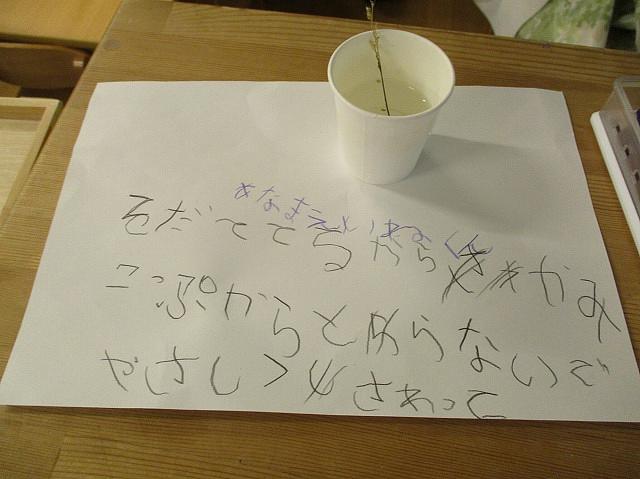 おなまえ
そだててるから かみ
こっぷからとめらないで
やさしくさわって